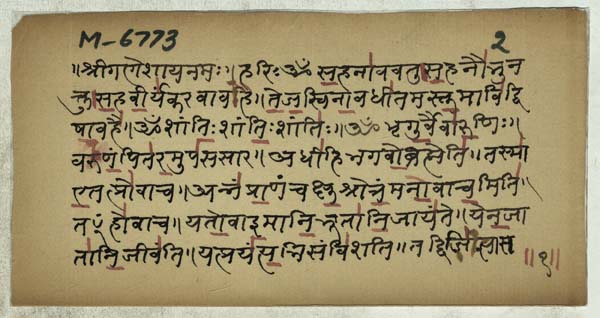 M-6773 2
॥श्रीगणेशायनमः॥हरिःॐ सहनाववतुसहनौभुन
क्तुसहवीर्यंकरवावहै॥तेजस्विनावधीतमस्तुमाविद्वि
षावहै॥ॐशांतिःशांतिःशांतिः॥ॐ भृगुर्वैवारुणिः॥
वरुणंपितरमुपससार॥अधीहिभगवोब्रह्मेति॥तस्मा
एतत्प्रोवाच॥अन्नंप्राणंचक्षुःश्रोत्रंमनोवाचमिति॥
तꣳहोवाच॥यतोवाइमानिभूतानिजायंते॥येनजा
तानिजीवंति॥यत्प्रयंत्यभिसंविशंति॥तद्विजिज्ञासस्व
॥१॥